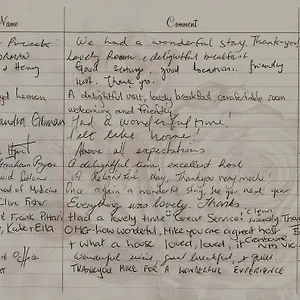 Name Comment
We had a wonderful stay. Thank-you
Lovely Room & delightful breakfast
& Henry Good Settings, good locations. friendly
host. Thank you.
A delightful visit, lovely breakfast comfortable room
welcoming and friendly
Had a wonderful time!
Felt like home!
Above all expectations
A delightful time, excellent host
A delightful stay, Thank you very much!
of Medicine Once again a wonderful stay, see you next year
Clive Fisher Everything was lovely. Thanks
& Frank Had a lovely time - Great Service, Clean, friendly, Than
, Kate + Ella OMG - how wonderful, Mike you are a great host
+ what a house loved, loved it
Wonderful visit, great breakfast, & quiet.
THANKYOU MIKE FOR A WONDERFUL EXPERIENCE